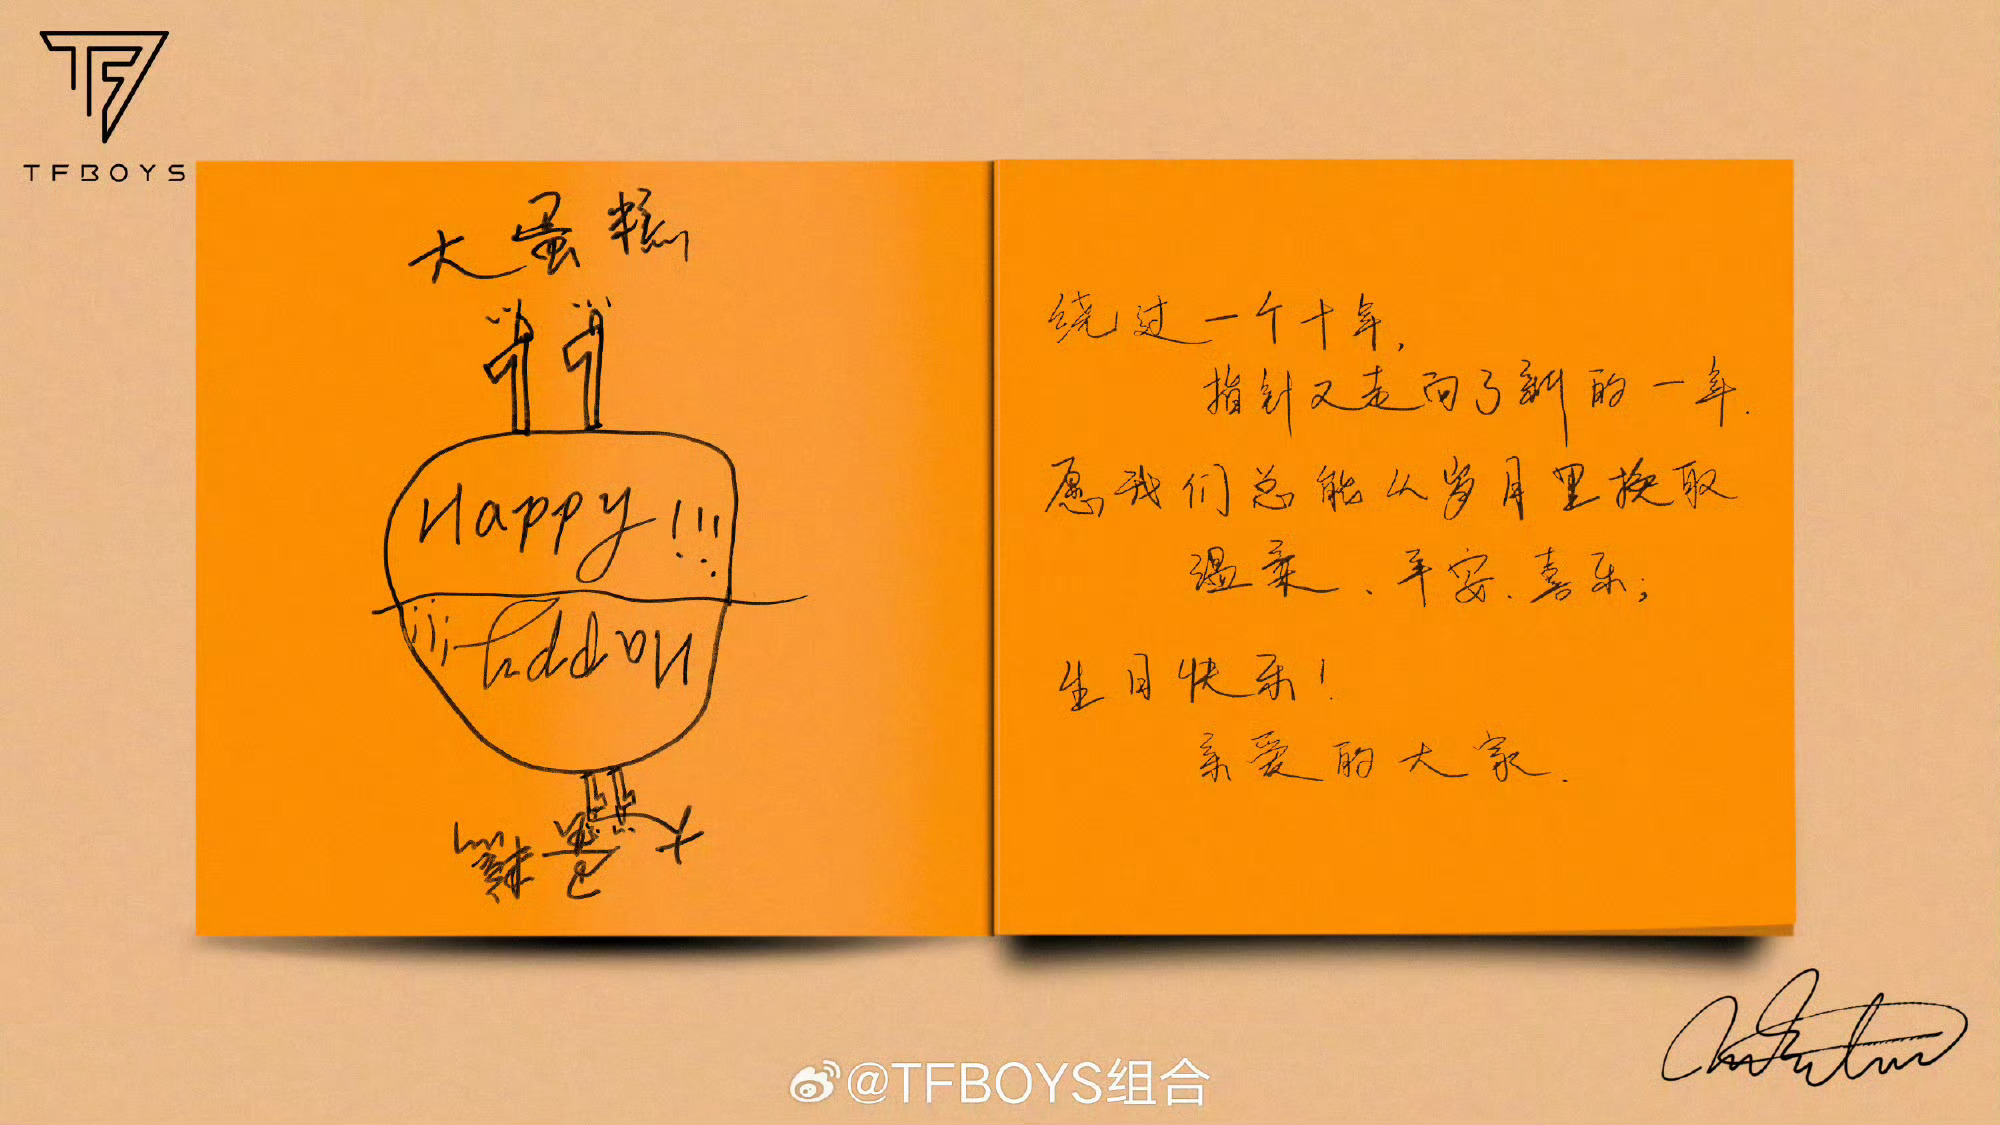 TFBOYS
大蛋糕
11
Happy!!!
Happy!!!
11
大蛋糕
绕过一个十年,
指针又走向了新的一年.
愿我们总能从岁月里换取
温柔、平安、喜乐;
生日快乐!
亲爱的大家.
@TFBOYS组合